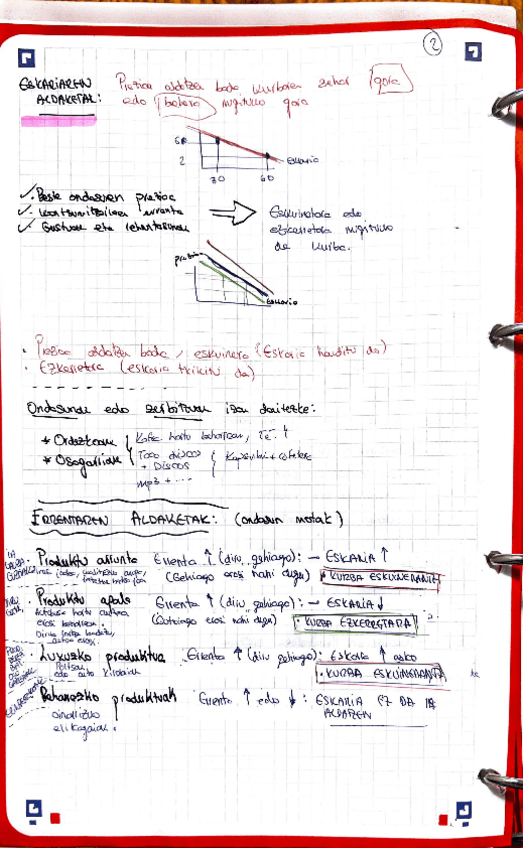 2
ESKARIAREN ALDAKETAK:
Prezioa aldatzen bada kurbaren zehar gora
edo behera mugituko gara
2
eskaria
30 60
✓ Beste ondasunen prezioa
✓ kontsumitzaileen errenta
✓ Gustuak eta lehentasunak
Eskuinetara edo
ezkerretara mugituko
da kurba.
prezioa
eskaria
· Prezioa aldatzen bada, eskuinera (Eskaria handitu da)
· Ezkerretara (eskaria txikitu da)
Ondasunak edo zerbitzuak izan daitezke:
* Ordezkoak Kafea hartu beharrean, Te.
* Osagarriak Toca discos + Discos
mp3 + ...
ERRENTAREN ALDAKETAK: (ondasun motak)
· Produktu arrunta Errenta ↑ (diru gehiago): → ESKARIA ↑
(Gehiago erosi nahi dugu) · KURBA ESKUINERANTZ
· Produktu apala Errenta ↑ (diru gehiago): → ESKARIA ↓
(Gutxiago erosi nahi dugu) · KURBA EZKERRETARA
Autobusa hartu
· Luxuzko produktua Errenta ↑ (diru gehiago): Eskaria ↑ asko
edo auto kirolak · KURBA ESKUINERANTZ
· Beharrezko produktuak Errenta ↑ edo ↓: ESKARIA EZ DA IA
ALDATZEN
oinarrizko
elikagaiak.